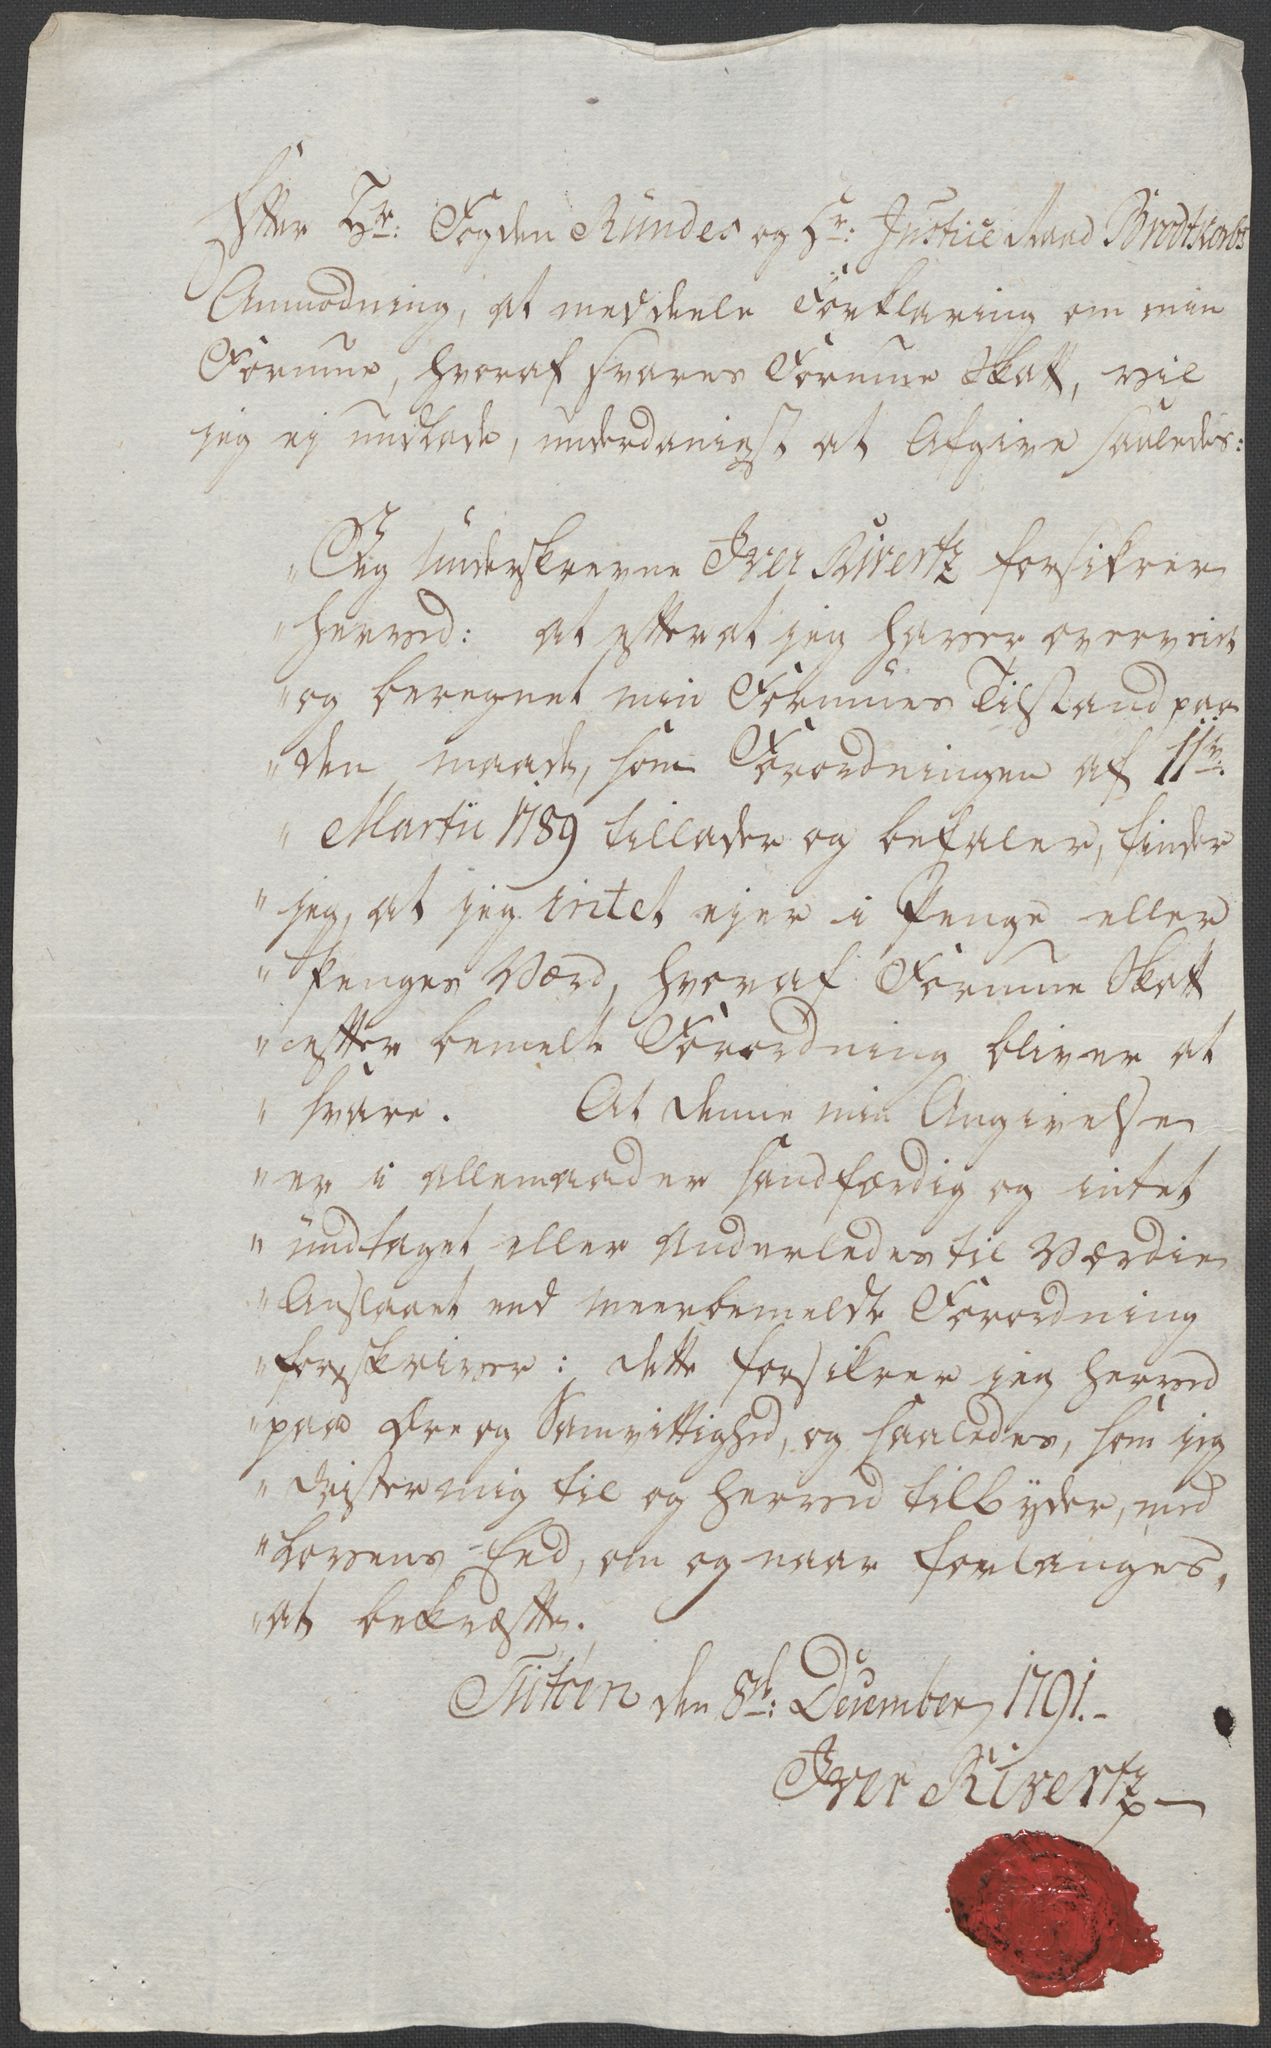 Efter Hr: Fogden Rundes og Hr: Justice Raad Brodtkorbs
Anmodning, at meddeele Forklaring om min
Formue, hvoraf svares Formue Skatt, vil
jeg ej undlade, underdanigst at Afgive saaledes:
" Jeg Underskrevne Iver Sivertz forsikrer
" herved: at efter at jeg haver overveiet
" og beregnet min Formues Tilstand paa
" den maade, som Forordningen af 11te:
" Martii 1789 tillader og befaler, finder
" jeg, at jeg intet ejer i Penge eller
" Penges Værd, hvoraf Formue Skatt
" efter bemelte Forordning bliver at
" svare. At denne min Angivelse
" er i allemaader sandfærdig og intet
" undtaget eller Anderledes til Værdie
" Anslaaet end meerbemeldte Forordning
" foreskriver: dette forsikrer jeg herved
" paa Ære og Samvittighed, og saaledes, som jeg
" trister mig til og herved tilbyder, med
" Lovens Eed, om og naar forlanges,
" at bekræfte.
Titöen den 8de: December 1791.-
Iver Sivertz